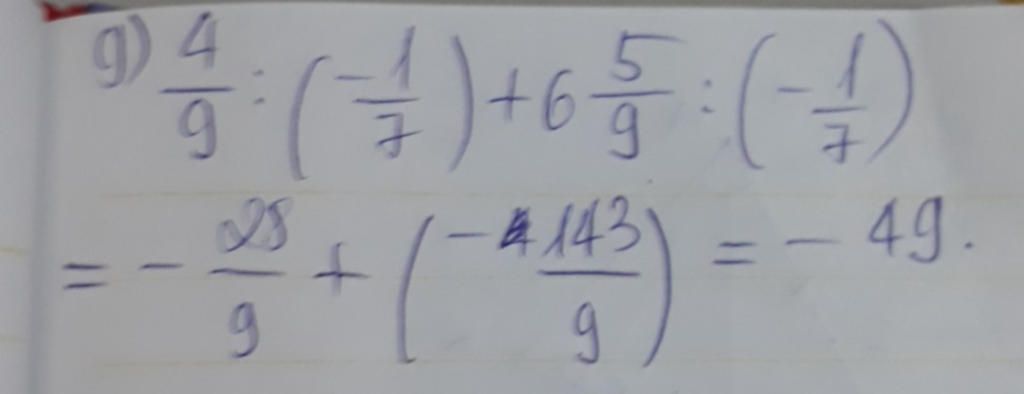 g) 4/9 : (-1/7) + 6 5/9 : (-1/7)
= - 28/9 + (- 143/9) = - 49.